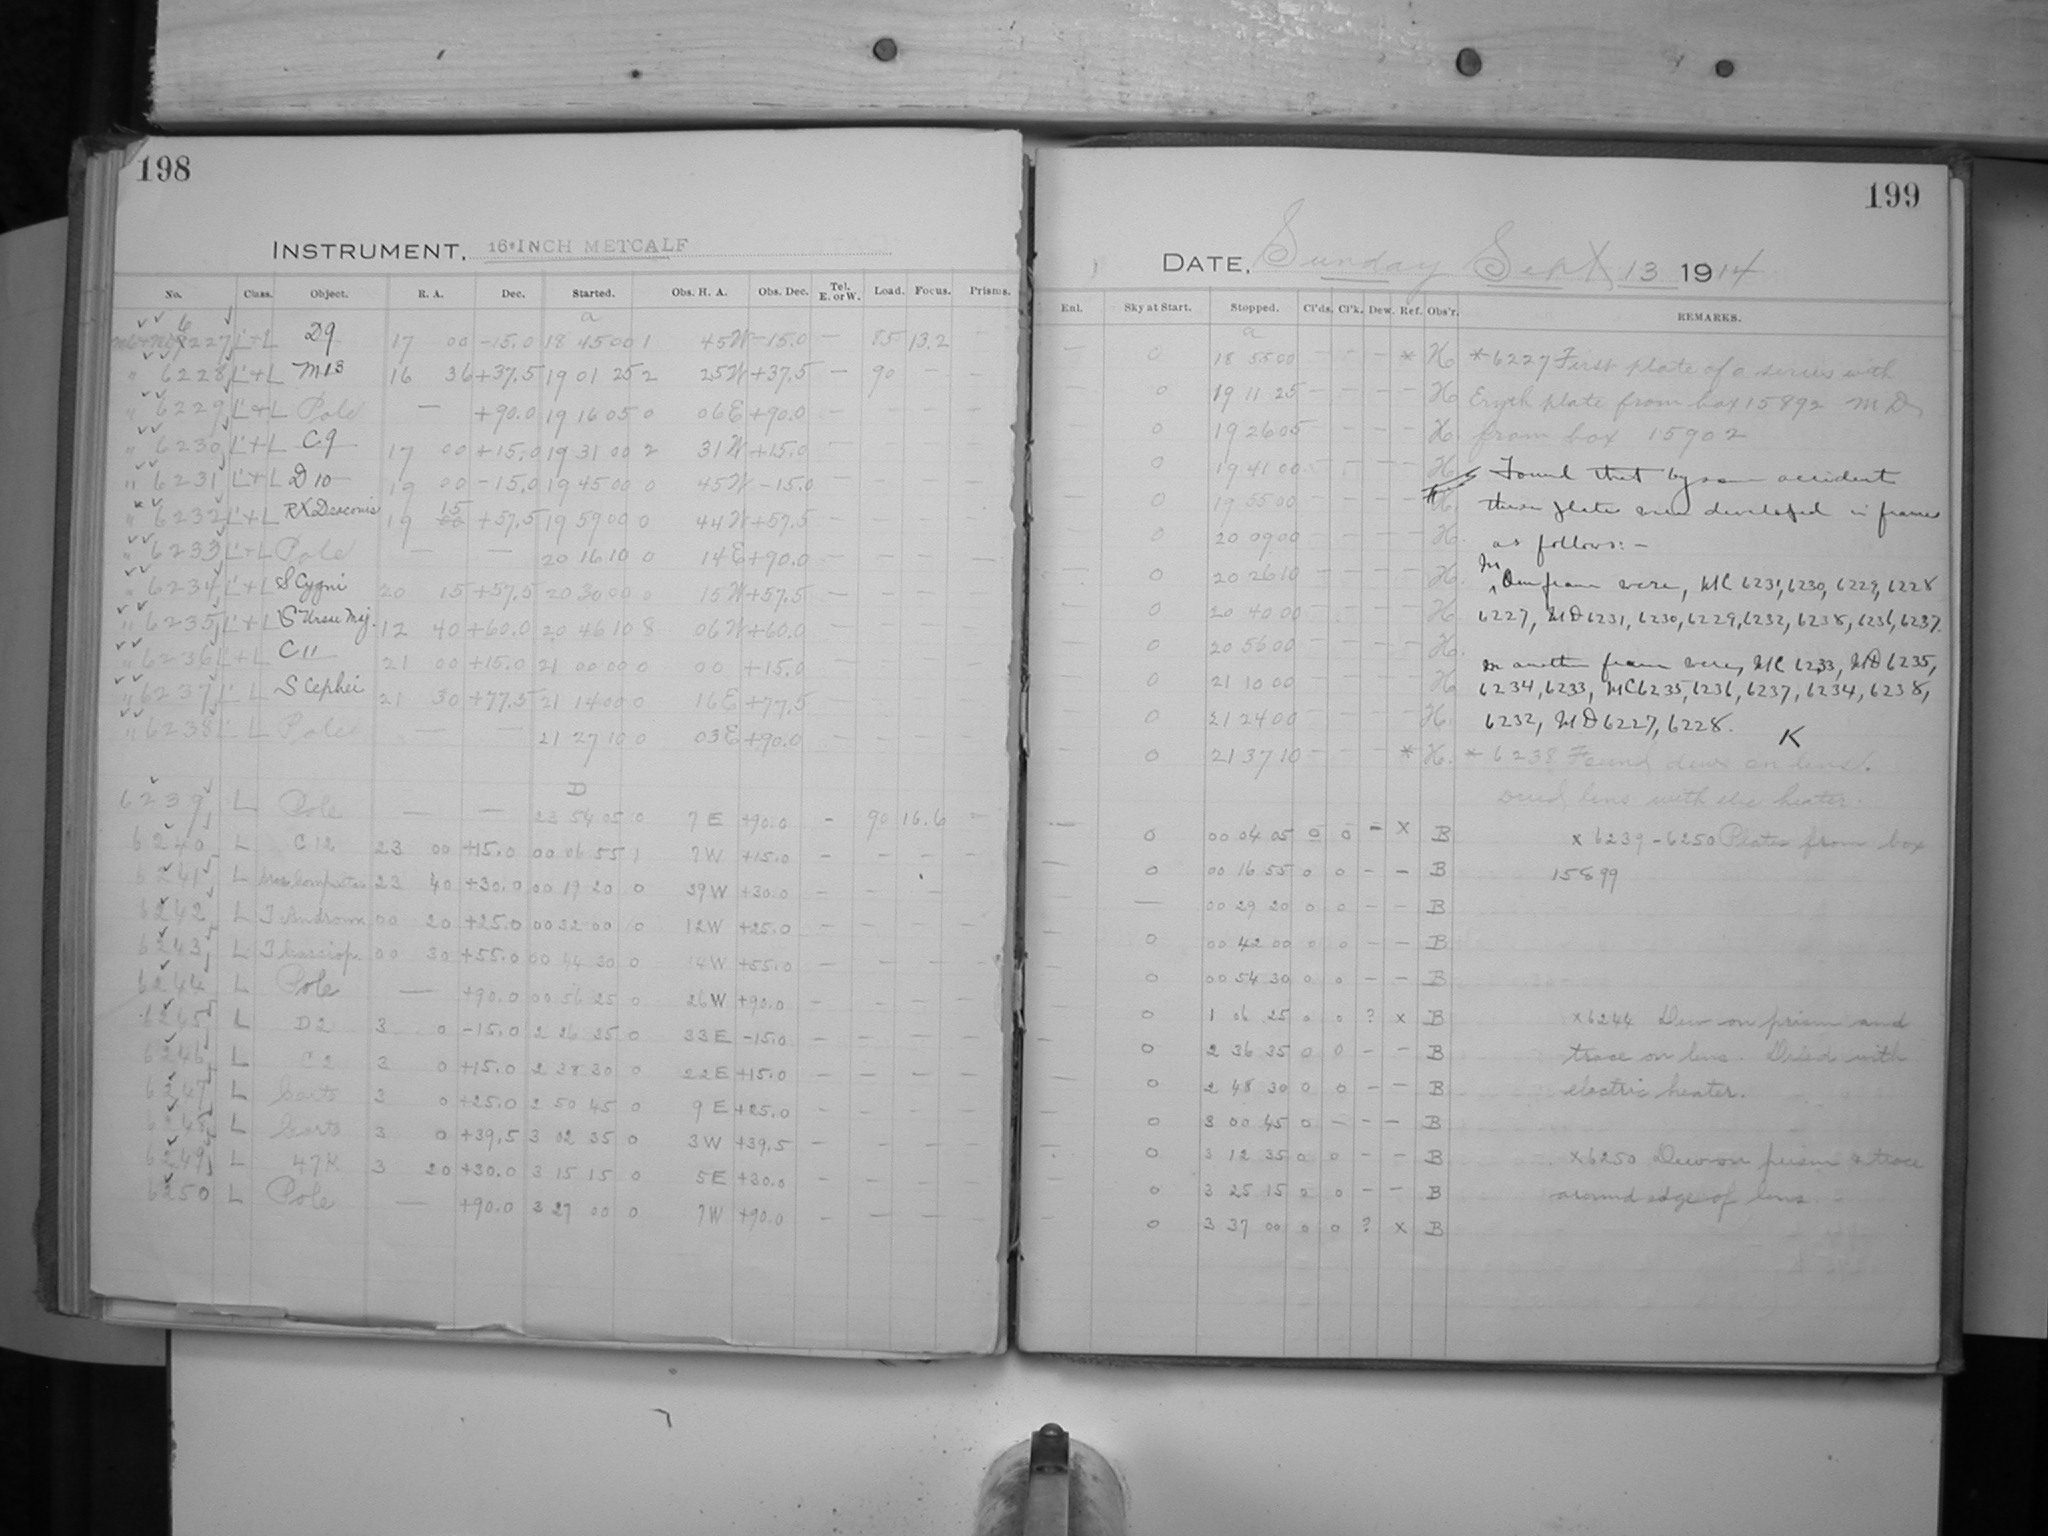 198
INSTRUMENT, 16-INCH METCALF
No. Class. Object. R. A. Dec. Started. Obs. H. A. Obs. Dec. Tel. E. or W. Load. Focus. Prisms.
a
6227 L'+L D9 17 00 -15.0 18 45 00 1 45W -15.0 — 85 13.2
" 6228 L'+L M13 16 36 +37.5 19 01 25 2 25W +37.5 — 90 — —
" 6229 L'+L Pole — +90.0 19 16 05 0 06E +90.0 — — — —
" 6230 L'+L C9 17 00 +15.0 19 31 00 2 31W +15.0 — — — —
" 6231 L'+L D10 19 00 -15.0 19 45 00 0 45W -15.0 — — — —
" 6232 L'+L RX Draconis 19 15 +57.5 19 59 00 0 44W +57.5 — — — —
" 6233 L'+L Pole — — 20 16 10 0 14E +90.0 — — — —
" 6234 L'+L S Cygni 20 15 +57.5 20 30 00 0 15W +57.5 — — — —
" 6235 L'+L S Ursae Maj. 12 40 +60.0 20 46 10 8 06W +60.0 — — — —
" 6236 L'+L C11 21 00 +15.0 21 00 00 0 00 +15.0 — — — —
" 6237 L' L S Cephei 21 30 +77.5 21 14 00 0 16E +77.5 — — — —
" 6238 L' L Pole — — 21 27 10 0 03E +90.0 — — — —
D
6239 L Pole — — 23 54 05 0 7E +90.0 - 90 16.6 —
6240 L C12 23 00 +15.0 00 06 55 1 7W +15.0 — — — —
6241 L 23 40 +30.0 00 19 20 0 39W +30.0 — — —
6242 L T Androm 00 20 +25.0 00 32 00 0 12W +25.0 — — — —
6243 L T Cassiop. 00 30 +55.0 00 44 30 0 14W +55.0 — — — —
6244 L Pole — +90.0 00 56 25 0 26W +90.0 — — — —
6245 L D2 3 0 -15.0 2 26 35 0 33E -15.0 — — — —
6246 L C2 3 0 +15.0 2 38 30 0 22E +15.0 — — — —
6247 L 3 0 +25.0 2 50 45 0 9E +25.0 — — — —
6248 L 3 0 +39.5 3 02 35 0 3W +39.5 — — — —
6249 L 47K 3 20 +30.0 3 15 15 0 5E +30.0 — — — —
6250 L Pole — +90.0 3 27 00 0 7W +90.0 — — — —
199
DATE, Sunday Sept 13 1914
Enl. Sky at Start. Stopped. Cl'ds. Cl'k. Dew. Ref. Obs'r. REMARKS.
a
— 0 18 55 00 — — — * H. * 6227 First plate of a series with
— 0 19 11 25 — — — — H Eryth plate from box 15892 MD
— 0 19 26 05 — — — — H. from box 15902
— 0 19 41 00 — — — — H Found that by some accident
— 0 19 55 00 — — — — H. these plates were developed in frames
— 0 20 09 00 — — — — H. as follows:—
— 0 20 26 10 — — — — H. In one frame were, MC 6231, 6230, 6229, 6228
— 0 20 40 00 — — — — H. 6227, MD 6231, 6230, 6229, 6232, 6238, 6236, 6237.
— 0 20 56 00 — — — — H. In another frame were, MC 6233, MD 6235,
— 0 21 10 00 — — — — H 6234, 6233, MC 6235, 6236, 6237, 6234, 6238,
— 0 21 24 00 — — — — H. 6232, MD 6227, 6228. K
— 0 21 37 10 — — — * H. * 6238 Found dew on lens.
Dried lens with elec heater.
— 0 00 04 05 0 0 - x B x 6239-6250 Plates from box
— 0 00 16 55 0 0 — — B 15899
— — 00 29 20 0 0 — — B
— 0 00 42 00 0 0 — — B
— 0 00 54 30 0 0 — — B
— 0 1 06 25 0 0 ? x B x 6244 Dew on prism and
— 0 2 36 35 0 0 — — B trace on lens. Dried with
— 0 2 48 30 0 0 — — B electric heater.
— 0 3 00 45 0 — — — B
— 0 3 12 35 0 0 — — B x 6250 Dew on prism & trace
— 0 3 25 15 0 0 — — B around edge of lens
— 0 3 37 00 0 0 ? x B